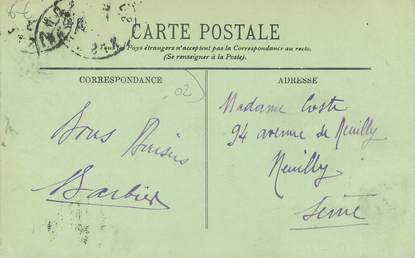 CARTE POSTALE
Tous les Pays étrangers n'acceptent pas la Correspondance au recto.
(Se renseigner à la Poste).
CORRESPONDANCE
ADRESSE
02
Bons Baisers
Barbier
Madame Coste
94 avenue de Neuilly
Neuilly
Seine